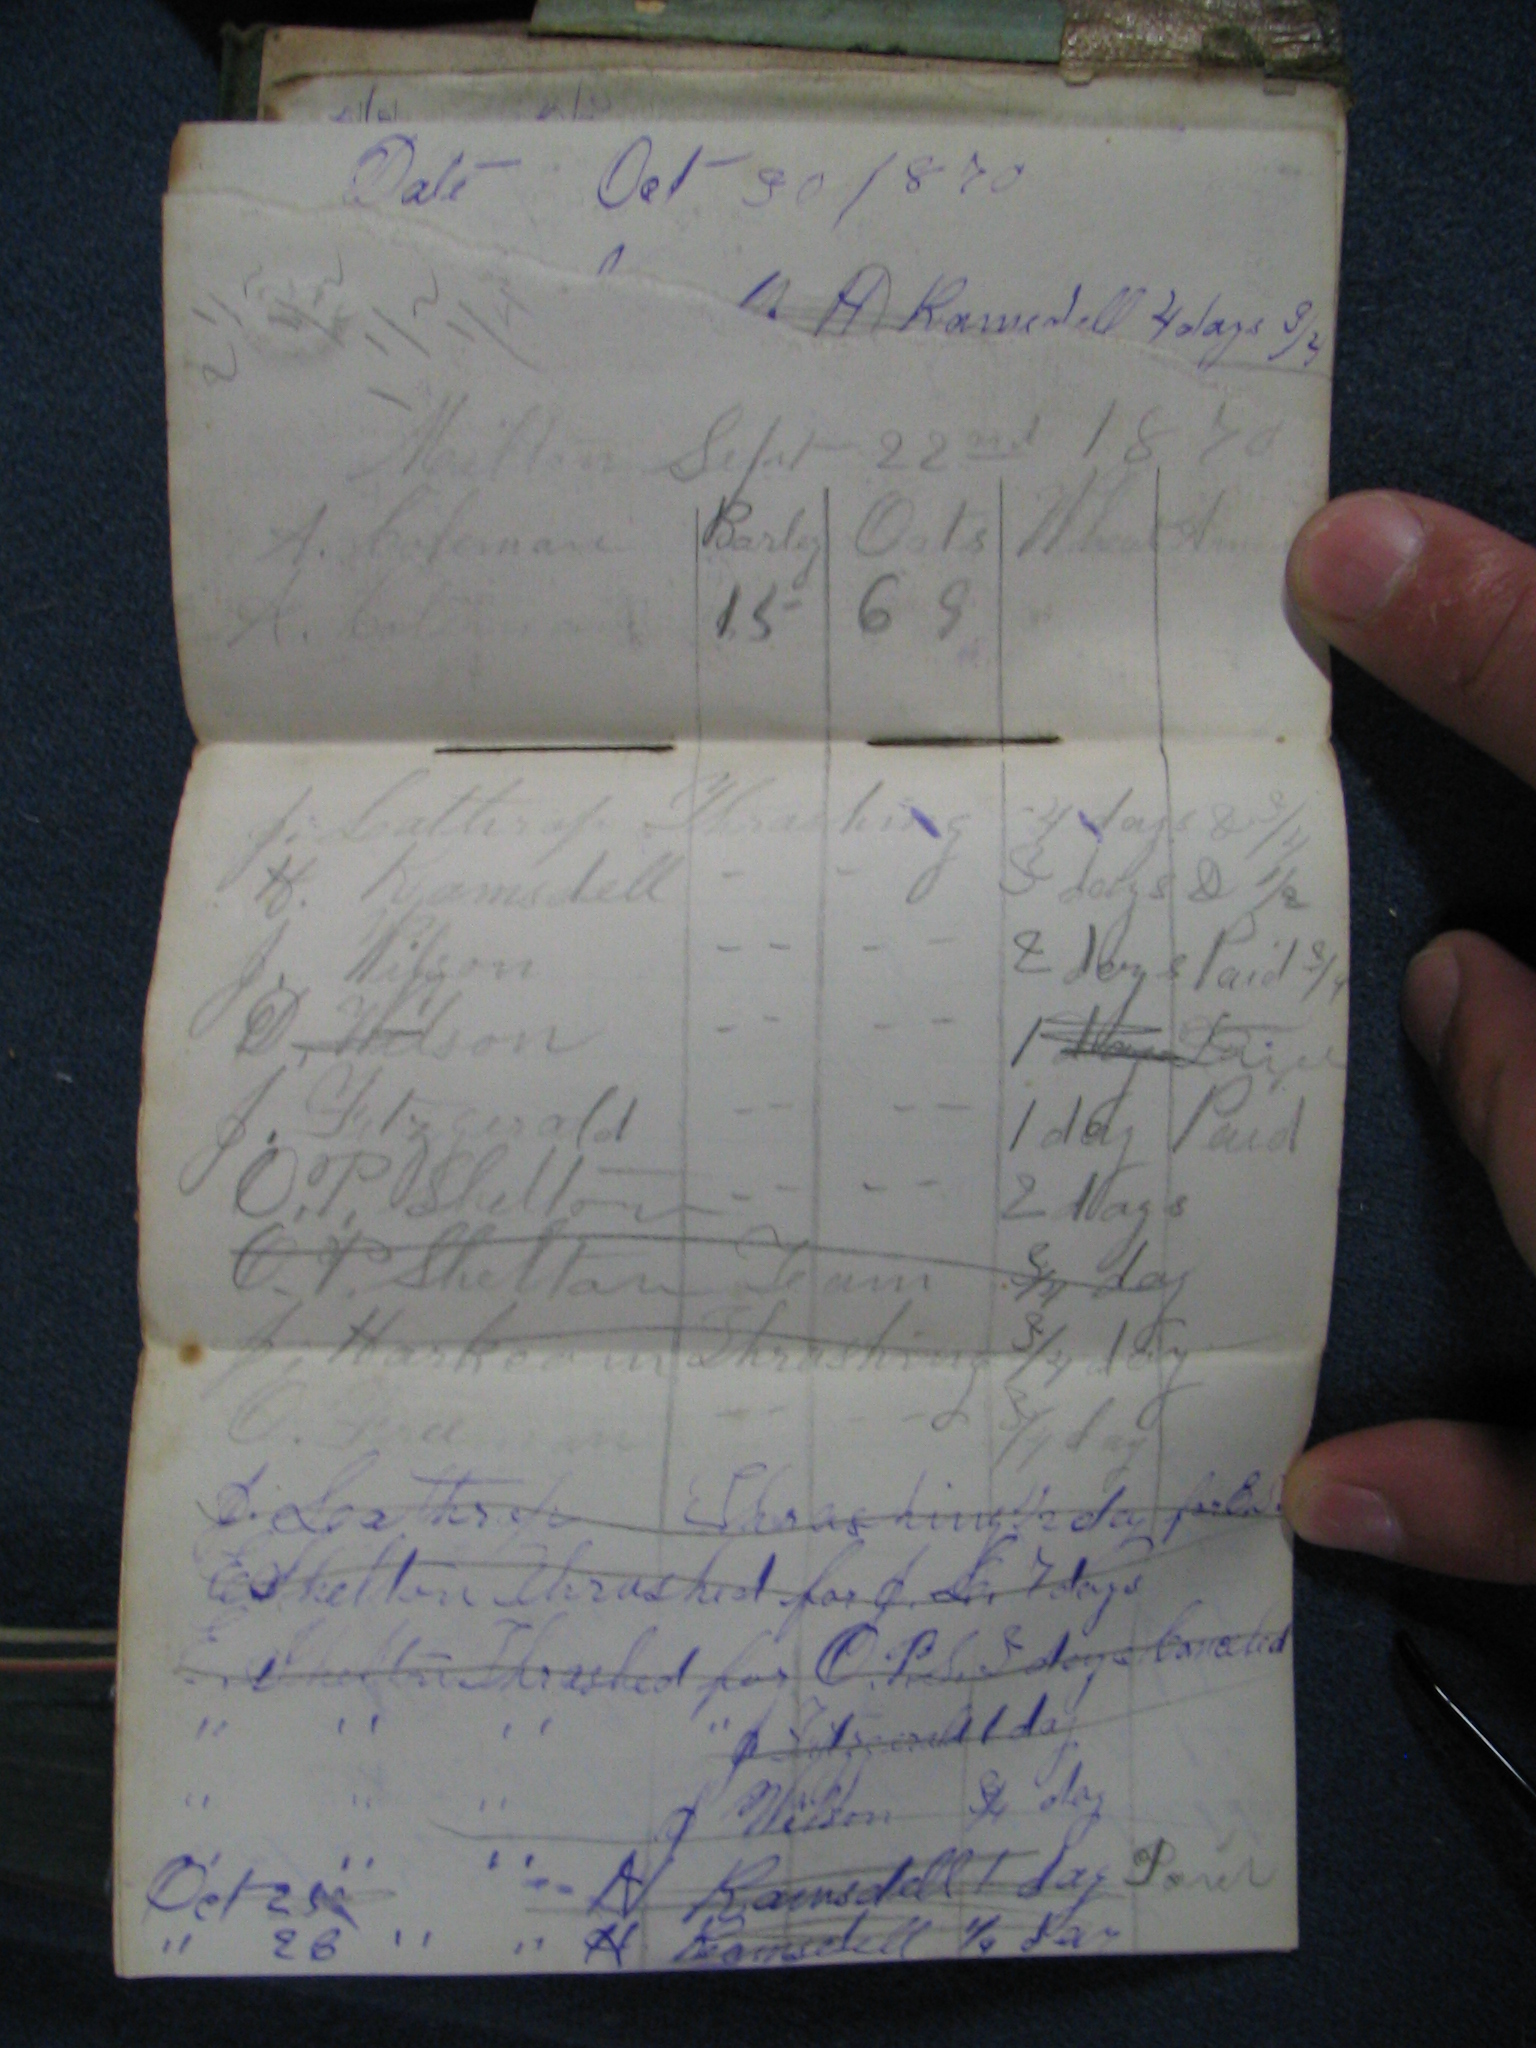 Date Oct 30 1870
H Ramsdell 4 days 3/4
Milton Sept 22nd 1870
A. Coleman Barley Oats Wheat
A. Coleman 15 69
J. Lathrop Thrashing 4 days & 3/4
H. Ramsdell - - 5 days & 1/2
J. Wilson - - - - 2 days Paid 3/4
D. Wilson - - - - 1 day Paid
J. Fitzgerald - - - - 1 day Paid
O. P. Shelton - - - - 2 days
O. P. Shelton Team 3/4 day
J. Thrashing 3/4 day
O. Freeman - - - - 3/4 day
J. Lathrop Thrashing 1/2 day for
E Shelton Thrashed for J. La. 7 days
E. Shelton Thrashed for O. P. S. 5 days Canceled
" " " " J Fitzgerald 1 day
" " " J Wilson 3/4 day
Oct 25 " " -- H Ramsdell 1 day
" 26 " " H Ramsdell 1/4 day